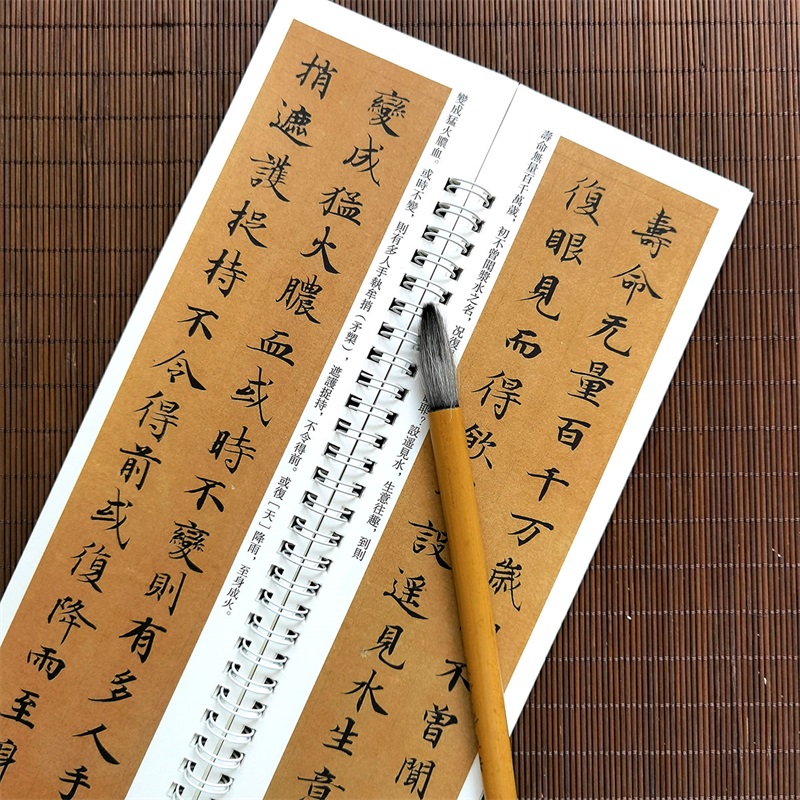 壽命无量百千万歲不曾聞
復眼見而得飲設遥見水生意
壽命無量百千萬歲，初不曾聞漿水之名，况復耶？設遥見水，生意往趣，到則
變成猛火膿血或時不變則有多人手
捎遮護捉持不令得前或復降雨至身
變成猛火膿血。或時不變，則有多人手執牟捎（矛槊），遮護捉持，不令得前。或復［天］降雨，至身成火。